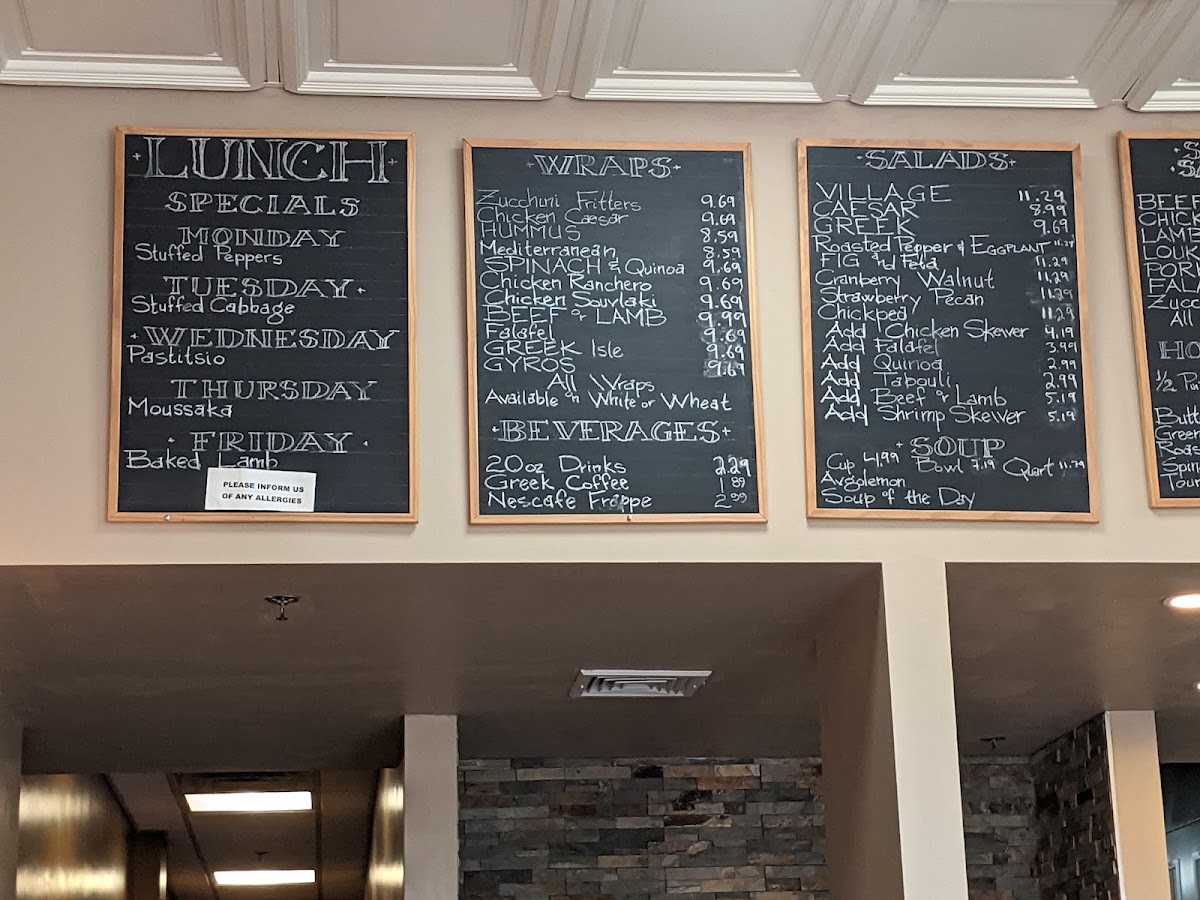 LUNCH
SPECIALS
MONDAY
Stuffed Peppers
TUESDAY
Stuffed Cabbage
WEDNESDAY
Pastitsio
THURSDAY
Moussaka
FRIDAY
Baked Lamb
PLEASE INFORM US
OF ANY ALLERGIES
WRAPS
Zucchini Fritters 9.69
Chicken Caesar 9.69
HUMMUS 8.59
Mediterranean 8.59
SPINACH & Quinoa 9.69
Chicken Ranchero 9.69
Chicken Souvlaki 9.69
BEEF or LAMB 9.99
Falafel 9.69
GREEK Isle 9.69
GYROS 9.69
All Wraps
Available in White or Wheat
BEVERAGES
20oz Drinks 2.29
Greek Coffee 1.89
Nescafe Frappe 2.99
SALADS
VILLAGE 11.29
CAESAR 8.99
GREEK 9.69
Roasted Pepper & EGGPLANT 11.29
FIG and Feta 11.29
Cranberry Walnut 11.29
Strawberry Pecan 11.29
Chickpea 11.29
Add Chicken Skewer 4.19
Add Falafel 3.99
Add Quinoa 2.99
Add Tabouli 2.99
Add Beef or Lamb 5.19
Add Shrimp Skewer 5.19
SOUP
Cup 4.99 Bowl 7.19 Quart 11.79
Avgolemon
Soup of the Day
BEEF
LAMB
All
1/2